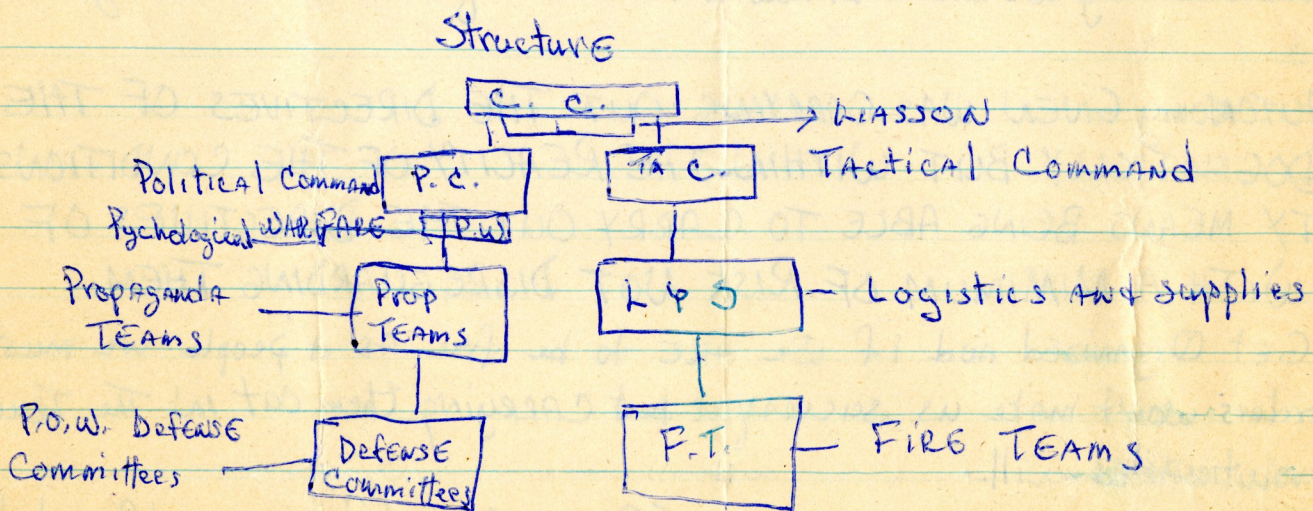 Structure
C. C.
LIASSON
Political Command P.C. Ta C. Tactical Command
Pychological WARFARE P.W
Propaganda Teams Prop Teams L & S Logistics and supplies
P.O.W. Defense Committees Defense Committees F.T. Fire Teams